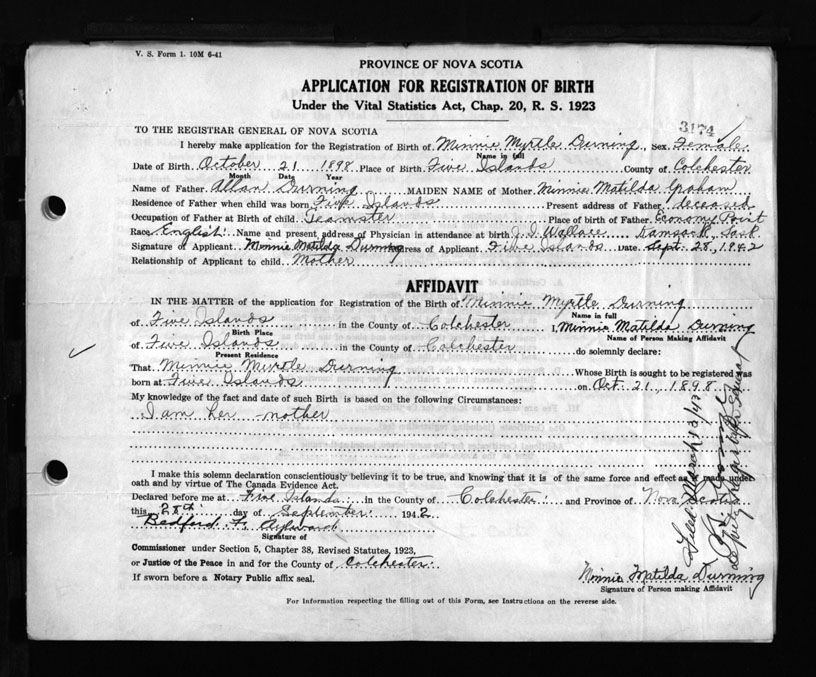 V. S. Form 1. 10M 6-41
PROVINCE OF NOVA SCOTIA
APPLICATION FOR REGISTRATION OF BIRTH
Under the Vital Statistics Act, Chap. 20, R. S. 1923
3174
TO THE REGISTRAR GENERAL OF NOVA SCOTIA
I hereby make application for the Registration of Birth of Minnie Myrtle Durning, Sex Female.
Name in full
Date of Birth October 21 1898 Place of Birth Five Islands County of Colchester
Month Date Year
Name of Father Allan Durning MAIDEN NAME of Mother Minnie Matilda Graham
Residence of Father when child was born Five Islands Present address of Father deceased
Occupation of Father at Birth of child Teamster Place of birth of Father Economy Point
Race English Name and present address of Physician in attendance at birth J. Wallace Kamsack, Sask
Signature of Applicant Minnie Matilda Durning Address of Applicant Five Islands Date Sept. 28, 1942
Relationship of Applicant to child Mother
AFFIDAVIT
IN THE MATTER of the application for Registration of the Birth of Minnie Myrtle Durning
Name in full
of Five Islands in the County of Colchester I, Minnie Matilda Durning
Birth Place Name of Person Making Affidavit
of Five Islands in the County of Colchester do solemnly declare:
Present Residence
That Minnie Myrtle Durning Whose Birth is sought to be registered was
born at Five Islands on Oct. 21, 1898.
My knowledge of the fact and date of such Birth is based on the following Circumstances:
I am her mother
I make this solemn declaration conscientiously believing it to be true, and knowing that it is of the same force and effect as made under
oath and by virtue of The Canada Evidence Act.
Declared before me at Five Islands in the County of Colchester and Province of Nova Scotia
this 28th day of September 1942
Bedford F.
Signature of
Commissioner under Section 5, Chapter 38, Revised Statutes, 1923,
or Justice of the Peace in and for the County of Colchester.
If sworn before a Notary Public affix seal.
Minnie Matilda Durning
Signature of Person making Affidavit
For Information respecting the filling out of this Form, see Instructions on the reverse side.
Filed March 13/43
Deputy Registrar General